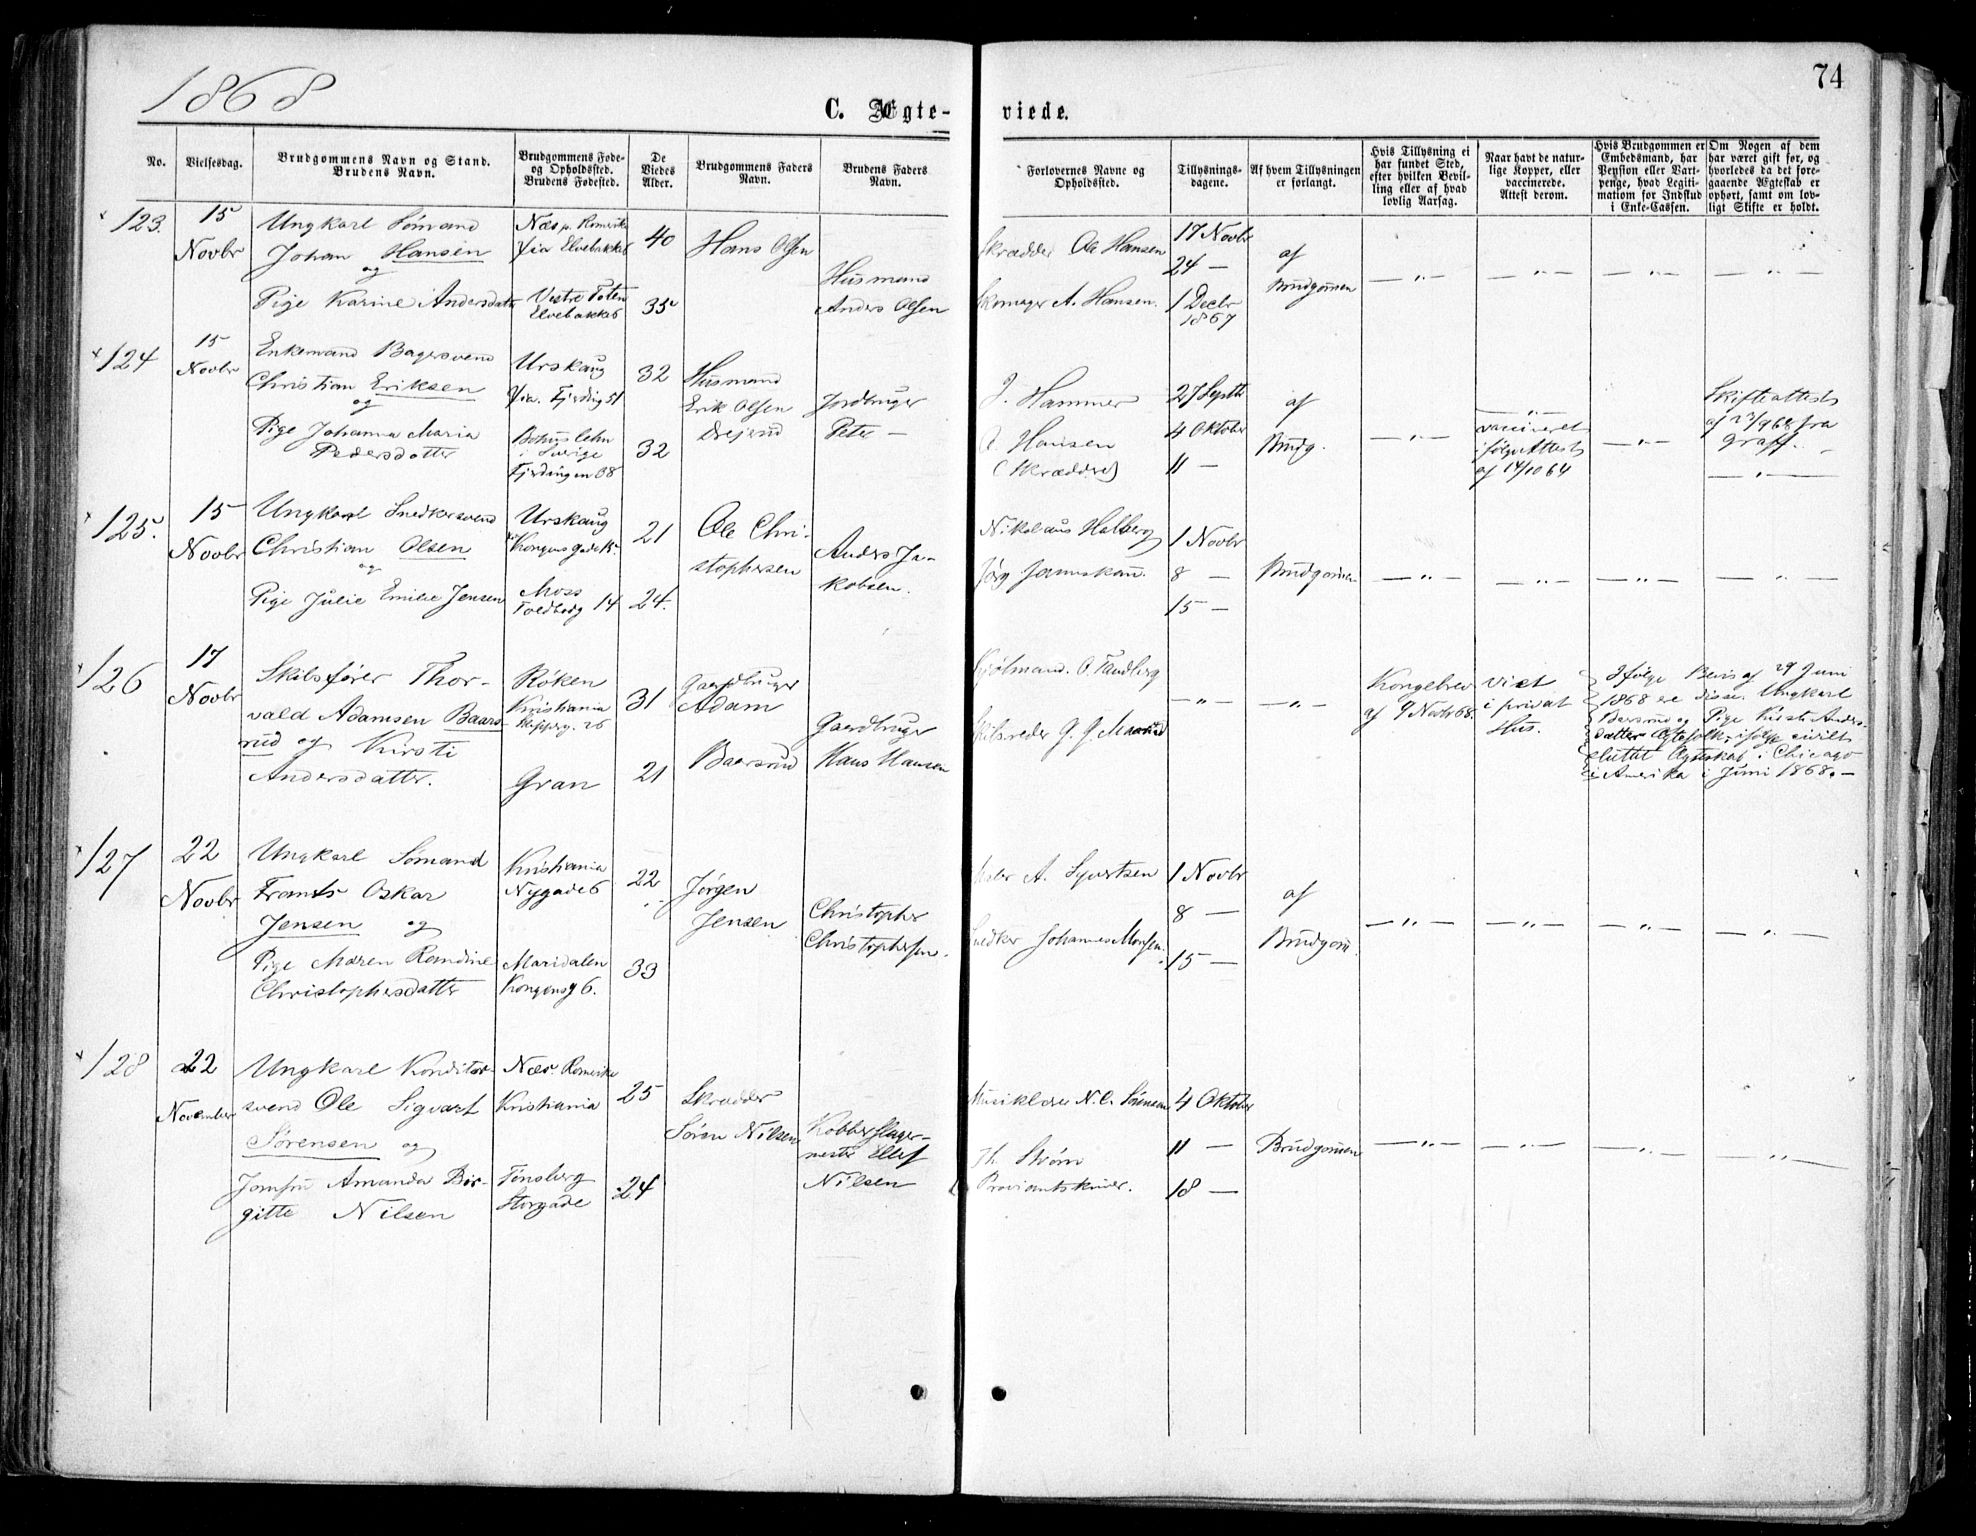 1868
74
C. Ægte-
viede.
No.
Vielsesdag.
Brudgommens Navn og Stand.
Brudens Navn.
Brudgommens Føde-
og Opholdssted.
Brudens Fødested.
De
Viedes
Alder.
Brudgommens Faders
Navn.
Brudens Faders
Navn.
Forlovernes Navne og
Opholdssted.
Tillysnings-
dagene.
Af hvem Tillysningen
er forlangt.
Hvis Tillysning ei
har fundet Sted,
efter hvilken Bevil-
ling eller af hvad
lovlig Aarsag.
Naar havt de natur-
lige Kopper, eller
vaccinerede.
Attest derom.
Hvis Brudgommen er
Embedsmand, har
Pension eller Vart-
penge, hvad Legiti-
mation for Indskud
i Enke-Cassen.
Om Nogen af dem
har været gift før, og
hvorledes da det fore-
gaaende Ægteskab er
ophørt, samt om lov-
ligt Skifte er holdt.
123.
15
Novbr
Ungkarl Sømand
Johan Hansen
og
Pige Karine Andersdatr
Næs p. Romerike
Elvebakke 6
Vestre Toten
Elvebakke 6
40
35
Hans Olsen
Husmand
Anders Olsen
Skrædder Ole Hansen
Skomager A. Hansen.
17 Novbr
24 —
1 Decbr
1867
af
Brudgommen
— „ —
— „ —
— „ —
— „ —
124
15
Novbr
Enkemand Bagersvend
Christian Eriksen
og
Pige Johanna Maria
Pedersdatter
Urskaug
Fjerding 51
Bohuslehn
i Sverige
Fjerdingen 38
32
32
Husmand
Erik Olsen
Drejerud
Jordbruger
Peter —
J. Hammer
A. Hansen
(Skrædder)
27 Septb
4 Oktober
11 —
af
Brudg.
— „ —
— „ —
vaccineret
ifølge Attest
af 14/10 64
— „ —
Skifteattest
af 23/9 68 fra
Graff.
— „ —
125.
15
Novbr
Ungkarl Snedkersvend
Christian Olsen
og
Pige Julie Emilie Jensen
Urskaug
Kongens gade 15
Moss
Toldbodg 14
21
24.
Ole Chri-
stophersen
Anders Ja-
kobsen.
Nikolaus Halberg
Jørg
1 Novbr
8 —
15 —
Brudgommen
— „ —
— „ —
— „ —
— „ —
126
17
Novbr
Skibsfører Thor-
vald Adamsen Baars-
rud og Kirsti
Andersdatter.
Røken
Kristiania
26
Gran
31
21
Gaardbruger
Adam
Baarsrud
Gaardbruger
Hans Hansen
O. Sandberg
Skibsreder G. G.
— „ —
— „ —
Kongebrev
af 9 Novbr 68.
viet
i privat
Hus.
Ifølge Bevis af 29 Juni
1868 ere disse, Ungkarl
Baarsrud og Pige Kirsti Anders-
datter Ægtefolk, ifølge civilt
sluttet Ægteskab i Chicago
i Amerika i Juni 1868. —
127
22
Novbr
Ungkarl Sømand
Frants Oskar
Jensen og
Pige Maren Randine
Christophersdatter
Kristiania
Nygade 6
Maridalen
Kongensg 6.
22
33
Jørgen
Jensen
Christopher
Christophersen.
A. Syvertsen
Snedker Johannes Monsen.
1 Novbr
8 —
15 —
af
Brudgom.
— „ —
— „ —
— „ —
— „ —
128
22
November
Ungkarl Konditor-
svend Ole Sigvart
Sørensen og
Jomfru Amanda Bir-
gitte Nilsen
Næs. Romerike
Kristiania
Tønsberg
Storgade
25
24
Skrædder
Søren Nilsen
Kobberslager-
mester Ellef
Nilsen
N. C. Sørensen
Th. Strøm
Proviantskriver.
4 Oktober
11 —
18 —
Brudgommen
— „ —
— „ —
— „ —
— „ —